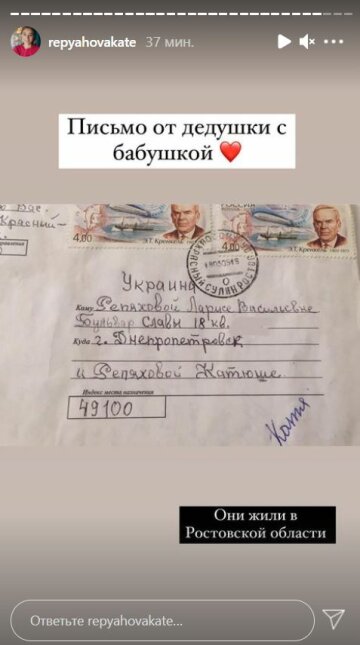 repyahovakate 37 мин.
Письмо от дедушки с
бабушкой
Красный-
4,00 Э.Т. Кренкель
РОССИЯ
4,00 Э.Т. Кренкель
Украина
Кому Репяховой Ларисе Васильевне
Бульвар Славы 18 кв.
Куда г. Днепропетровск
и Репяховой Катюше
Индекс места назначения
49100
Катя
Они жили в
Ростовской области
Ответьте repyahovakate...